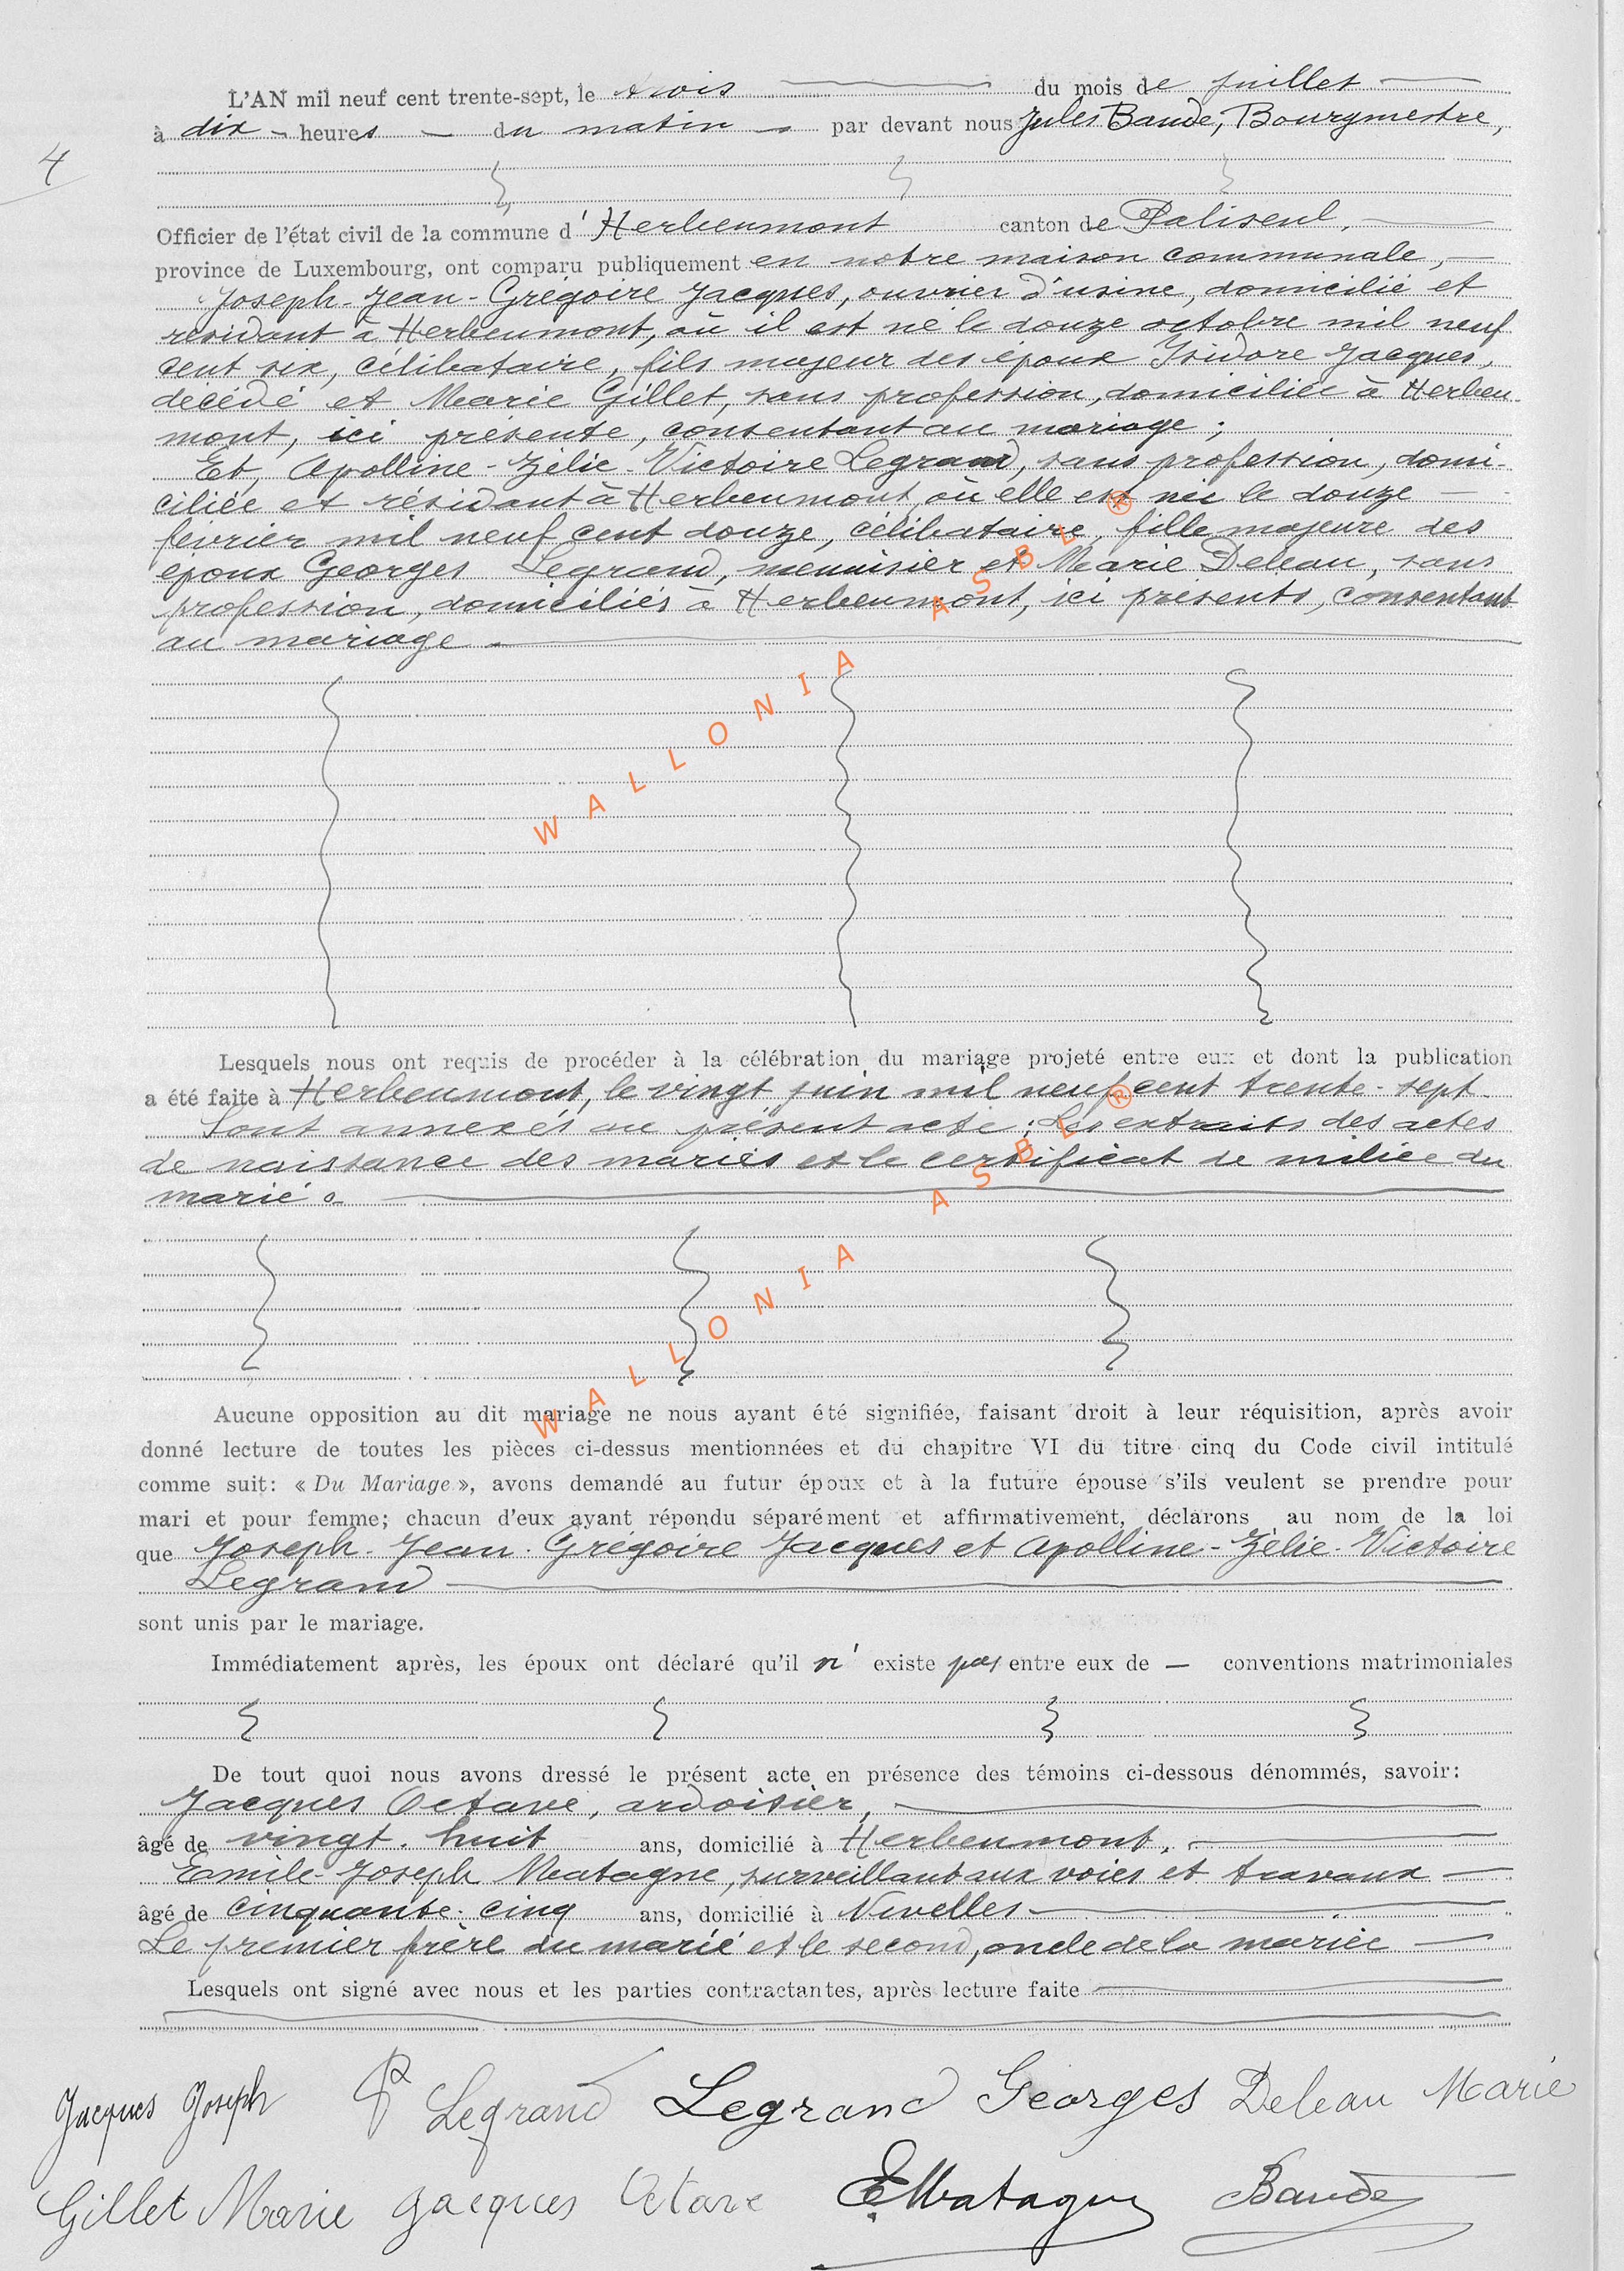 4
L'AN mil neuf cent trente-sept, le trois du mois de juillet
à dix heures du matin par devant nous Jules Baude, Bourgmestre,
Officier de l'état civil de la commune d'Herbeumont canton de Paliseul,
province de Luxembourg, ont comparu publiquement en notre maison communale,
Joseph-Jean-Grégoire Jacques, ouvrier d'usine, domicilié et
résidant à Herbeumont, où il est né le douze octobre mil neuf
cent six, célibataire, fils majeur des époux Isidore Jacques,
décédé et Marie Gillet, sans profession, domiciliée à Herbeu-
mont, ici présente, consentant au mariage ;
Et, Apolline-Zélie-Victoire Legrand, sans profession, domi-
ciliée et résidant à Herbeumont, où elle est née le douze
février mil neuf cent douze, célibataire, fille majeure des
époux Georges Legrand, menuisier et Marie Deleau, sans
profession, domiciliés à Herbeumont, ici présents, consentant
au mariage.
WALLONIA ASBL ®
Lesquels nous ont requis de procéder à la célébration du mariage projeté entre eux et dont la publication
a été faite à Herbeumont, le vingt juin mil neuf cent trente-sept.
Sont annexés au présent acte : Les extraits des actes
de naissance des mariés et le certificat de milice du
marié.
WALLONIA ASBL ®
Aucune opposition au dit mariage ne nous ayant été signifiée, faisant droit à leur réquisition, après avoir
donné lecture de toutes les pièces ci-dessus mentionnées et du chapitre VI du titre cinq du Code civil intitulé
comme suit: « Du Mariage », avons demandé au futur époux et à la future épouse s'ils veulent se prendre pour
mari et pour femme; chacun d'eux ayant répondu séparément et affirmativement, déclarons au nom de la loi
que Joseph-Jean-Grégoire Jacques et Apolline-Zélie-Victoire
Legrand
sont unis par le mariage.
Immédiatement après, les époux ont déclaré qu'il n'existe pas entre eux de — conventions matrimoniales
De tout quoi nous avons dressé le présent acte en présence des témoins ci-dessous dénommés, savoir:
Jacques Octave, ardoisier,
âgé de vingt-huit ans, domicilié à Herbeumont,
Emile-Joseph Matagne, surveillant aux voies et travaux
âgé de cinquante-cinq ans, domicilié à Nivelles
Le premier frère du marié et le second, oncle de la mariée
Lesquels ont signé avec nous et les parties contractantes, après lecture faite
Jacques Joseph Legrand Legrand Georges Deleau Marie
Gillet Marie Jacques Octave E Matagne Baude